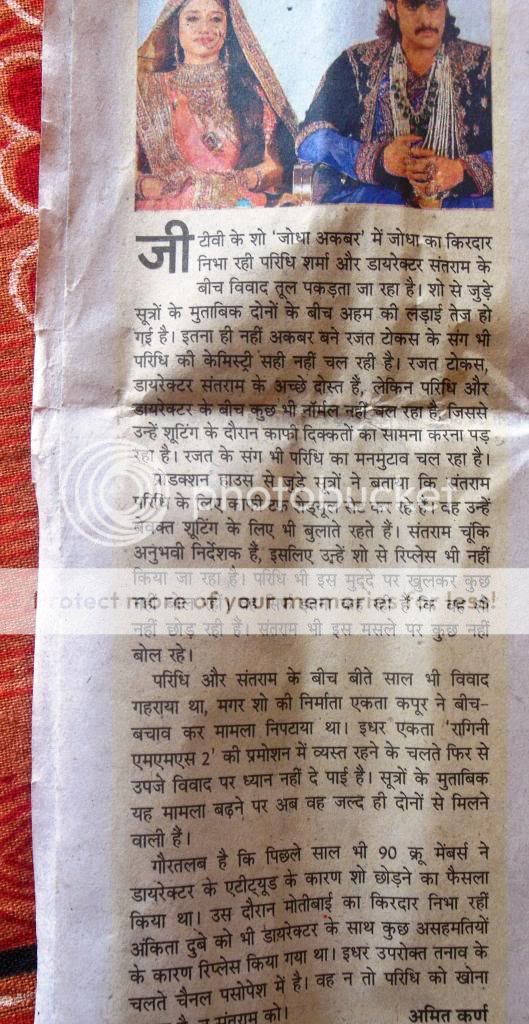 जी टीवी के शो 'जोधा अकबर' में जोधा का किरदार
निभा रही परिधि शर्मा और डायरेक्टर संतराम के
बीच विवाद तूल पकड़ता जा रहा है। शो से जुड़े
सूत्रों के मुताबिक दोनों के बीच अहम की लड़ाई तेज हो
गई है। इतना ही नहीं अकबर बने रजत टोकस के संग भी
परिधि की केमिस्ट्री सही नहीं चल रही है। रजत टोकस,
डायरेक्टर संतराम के अच्छे दोस्त हैं, लेकिन परिधि और
डायरेक्टर के बीच कुछ भी नॉर्मल नहीं चल रहा है, जिससे
उन्हें शूटिंग के दौरान काफी दिक्कतों का सामना करना पड़
रहा है। रजत के संग भी परिधि का मनमुटाव चल रहा है।
प्रोडक्शन हाउस से जुड़े सूत्रों ने बताया कि संतराम
परिधि के लिए काफी टफ शेड्यूल सेट कर रहे हैं। वह उन्हें
बेवक्त शूटिंग के लिए भी बुलाते रहते हैं। संतराम चूंकि
अनुभवी निर्देशक हैं, इसलिए उन्हें शो से रिप्लेस भी नहीं
किया जा रहा है। परिधि भी इस मुद्दे पर खुलकर कुछ
नहीं बोल रही
नहीं छोड़ रही है। संतराम भी इस मसले पर कुछ नहीं
बोल रहे।
परिधि और संतराम के बीच बीते साल भी विवाद
गहराया था, मगर शो की निर्माता एकता कपूर ने बीच-
बचाव कर मामला निपटाया था। इधर एकता 'रागिनी
एमएमएस 2' की प्रमोशन में व्यस्त रहने के चलते फिर से
उपजे विवाद पर ध्यान नहीं दे पाई है। सूत्रों के मुताबिक
यह मामला बढ़ने पर अब वह जल्द ही दोनों से मिलने
वाली हैं।
गौरतलब है कि पिछले साल भी 90 क्रू मेंबर्स ने
डायरेक्टर के एटीट्यूड के कारण शो छोड़ने का फैसला
किया था। उस दौरान मोतीबाई का किरदार निभा रहीं
अंकिता दुबे को भी डायरेक्टर के साथ कुछ असहमतियों
के कारण रिप्लेस किया गया था। इधर उपरोक्त तनाव के
चलते चैनल पसोपेश में है। वह न तो परिधि को खोना
है, न संतराम को।
अमित कर्ण
photobucket
Protect more of your memories for less!